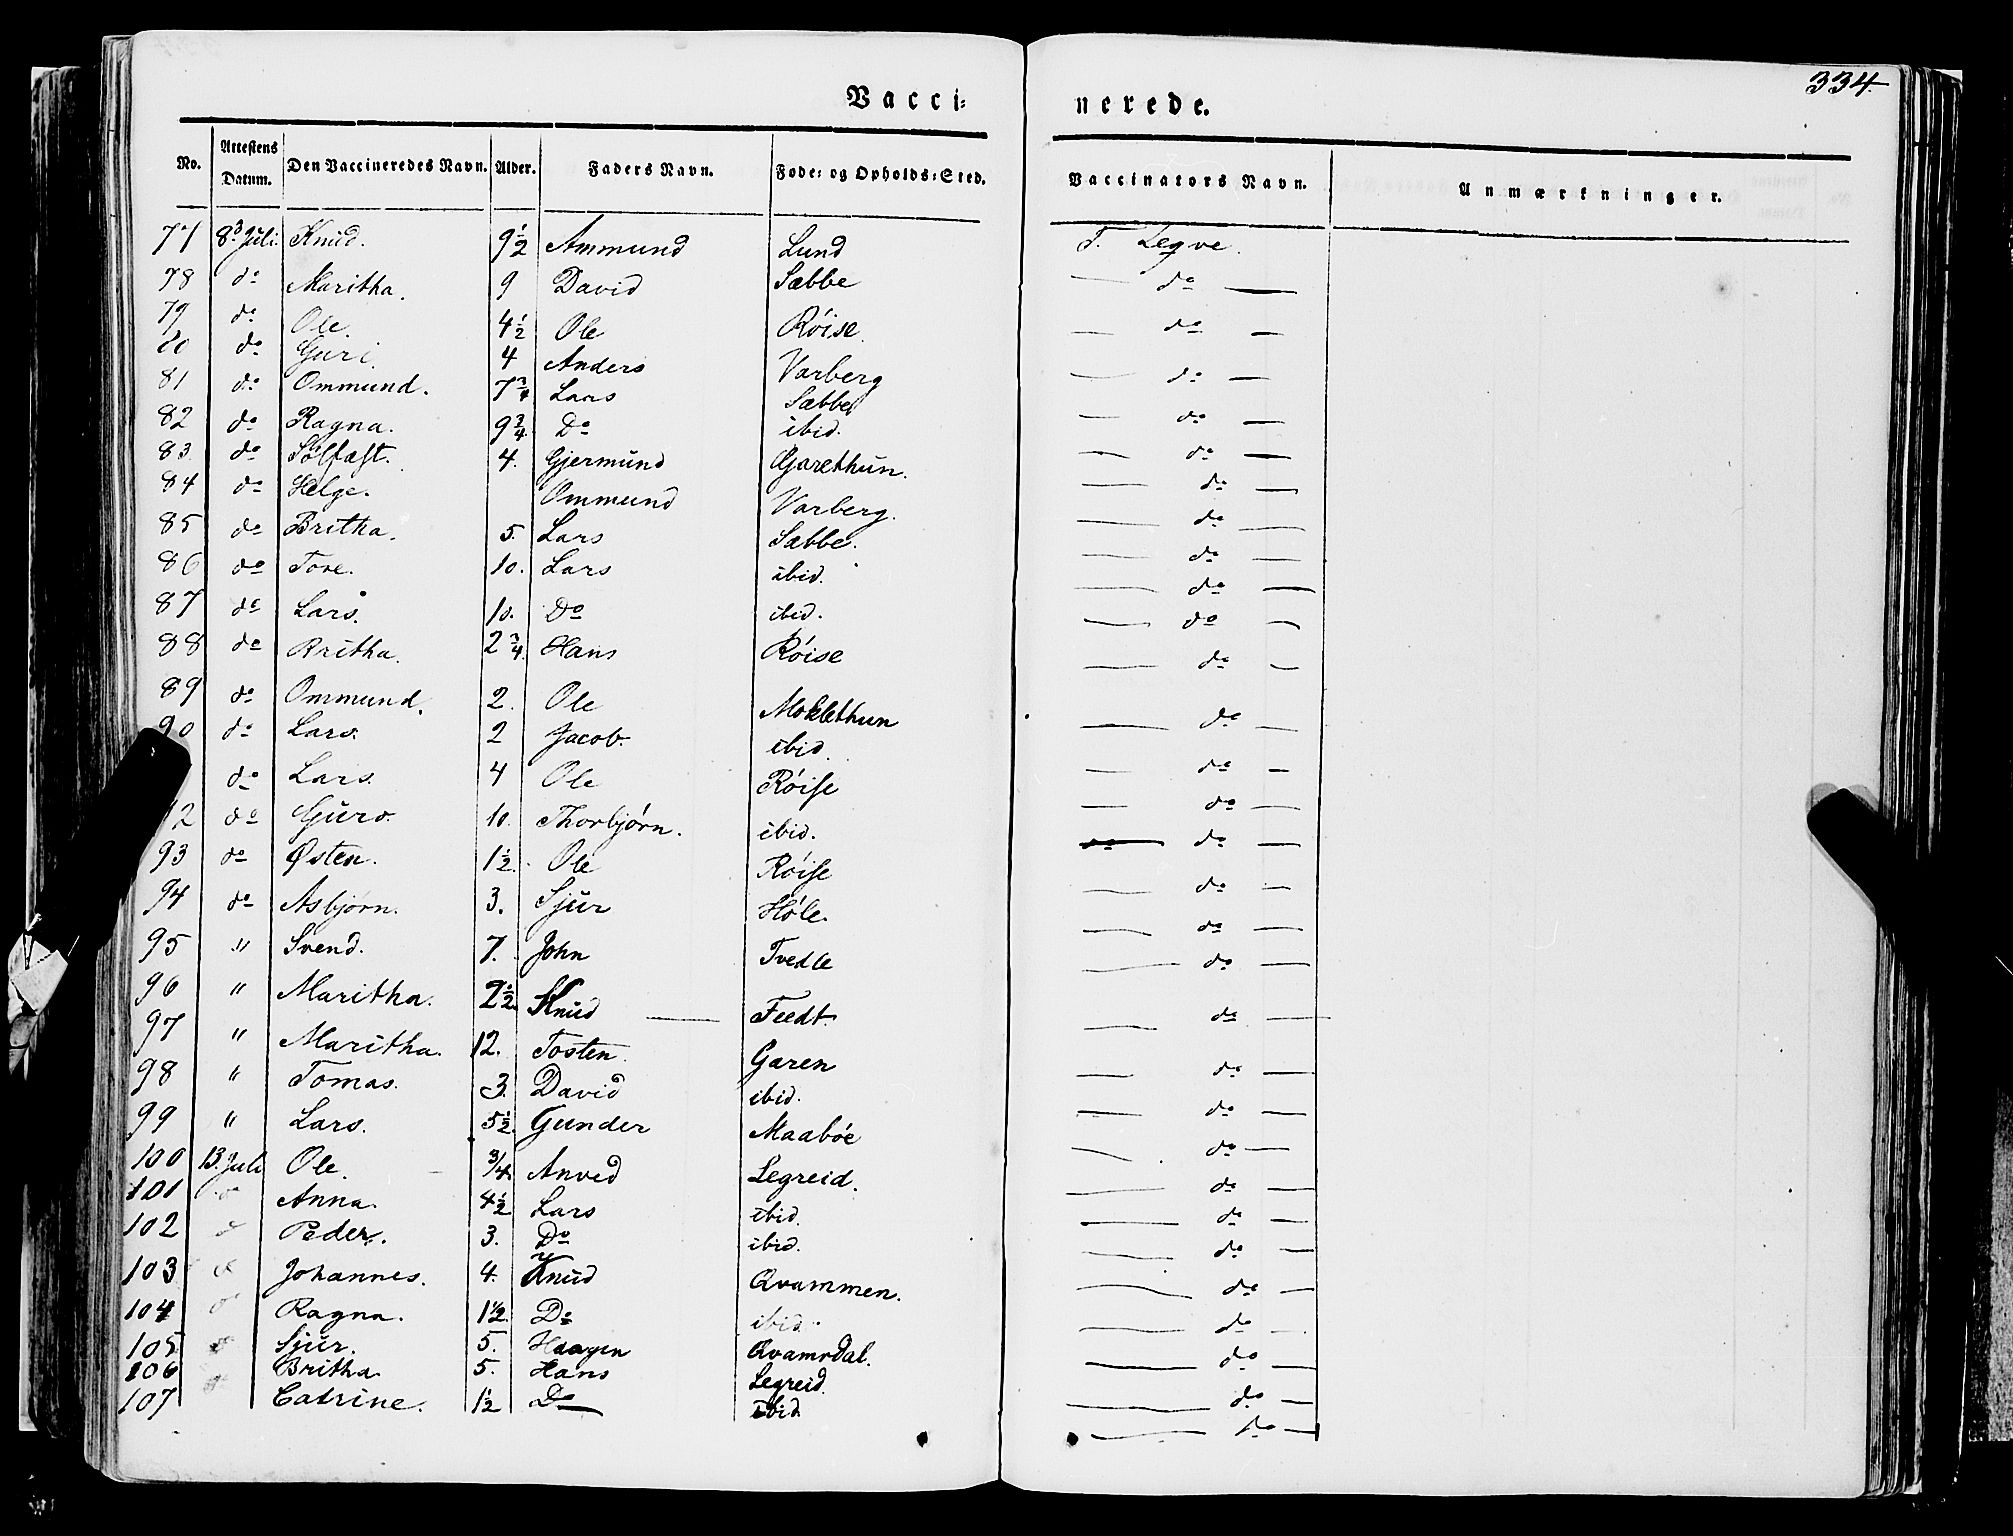 334.
Vacci: nerede.
No. Attestens Datum. Den Vaccineredes Navn. Alder. Faders Navn. Føde: og Opholds:Sted. Vaccinators Navn. Anmærkninger.
77 8d Juli. Knud. 9 1/2 Ammund Lund T. Legve.
78 do Maritha. 9 David Sæbbe — do —
79 do Ole. 4 1/2 Ole Røise. — do —
80 do Guri 4 Anders Varberg — do —
81 do Ommund. 7 3/4 Lars Sæbbe — do —
82 do Ragna. 9 3/4 Do ibid. — do —
83. do Sølfæst. 4. Gjermund Garethun. — do —
84 do Helge. Ommund Varberg. — do —
85 do Britha. 5. Lars Sæbbe. — do —
86 do Tore. 10. Lars ibid. — do —
87 do Lars. 10. Do ibid. — do —
88 do Britha. 2 3/4. Hans Røise — do —
89 do Ommund. 2. Ole Moklethun — do —
90 do Lars. 2 Jacob. ibid. — do —
do Lars. 4 Ole Røise — do —
2 do Guro. 10. Thorbjørn. ibid. — do —
93 do Østen. 1 1/2. Ole Røise — do —
94 do Asbjørn. 3. Sjur Høle. — do —
95 " Svend. 7. John Tvedte — do —
96 " Maritha. 2 1/2 Knud — Feedt. — do —
97 " Maritha. 12. Tosten. Garen — do —
98 " Tomas. 3. David ibid. — do —
99 " Lars. 5 1/2. Gunder Maabøe — do —
100 13. Juli Ole. 3/4. Anved Legreid. — do —
101 do Anna. 4 1/2 Lars ibid. — do —
102 d Peder. 3. Do ibid. — do —
103 d Johannes. 4. Knud Qvammen. — do —
104 d Ragna. 1 1/2. Do ibid. — do —
105 d Sjur. 5. Haagen Qvamsdal. — do —
106 Britha 5. Hans Legreid. — do —
107 Catrine. 1/2 Do ibid. — do —